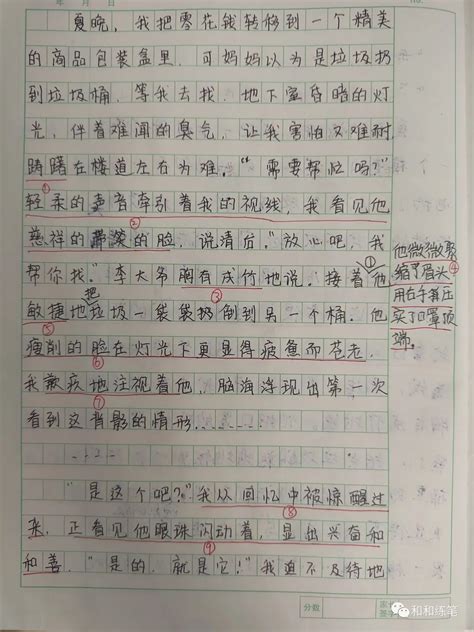 年 月 日
夏晚,我把零花钱转移到一个精美
的商品包装盒里,可妈妈以为是垃圾扔
到垃圾桶,等我去找,地下室昏暗的灯
光,伴着难闻的臭气,让我害怕又难耐,
踌躇在楼道左右为难。“需要帮忙吗?”
①
轻柔的声音牵引着我的视线,我看见他
②
慈祥的带笑的脸,说清后。“放心吧,我
帮你找。”李大爷胸有成竹地说,接着①他
③
敏捷地把垃圾一袋袋扔倒到另一个桶。他
⑤
瘦削的脸在灯光下更显得疲惫而苍老,
⑥
我歉疚地注视着他,脑海浮现出第一次
⑦
看到这背影的情形………
“是这个吧?”我从回忆中被惊醒过
⑧
来,正看见他眼珠闪动着,显出兴奋和
⑨
和善。“是的,就是它!”我迫不及待地
他微微蹙
缩了眉头④
用右手算压
实了口罩顶
端。
分数
和和练笔